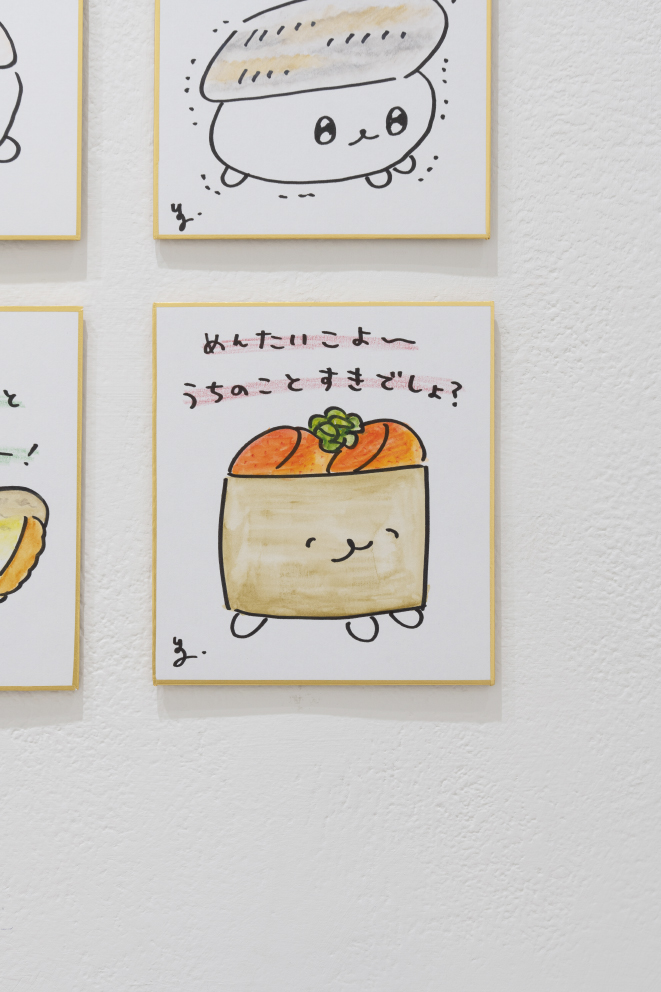 めんたいこよ〜
うちのことすきでしょ?
と
ー!